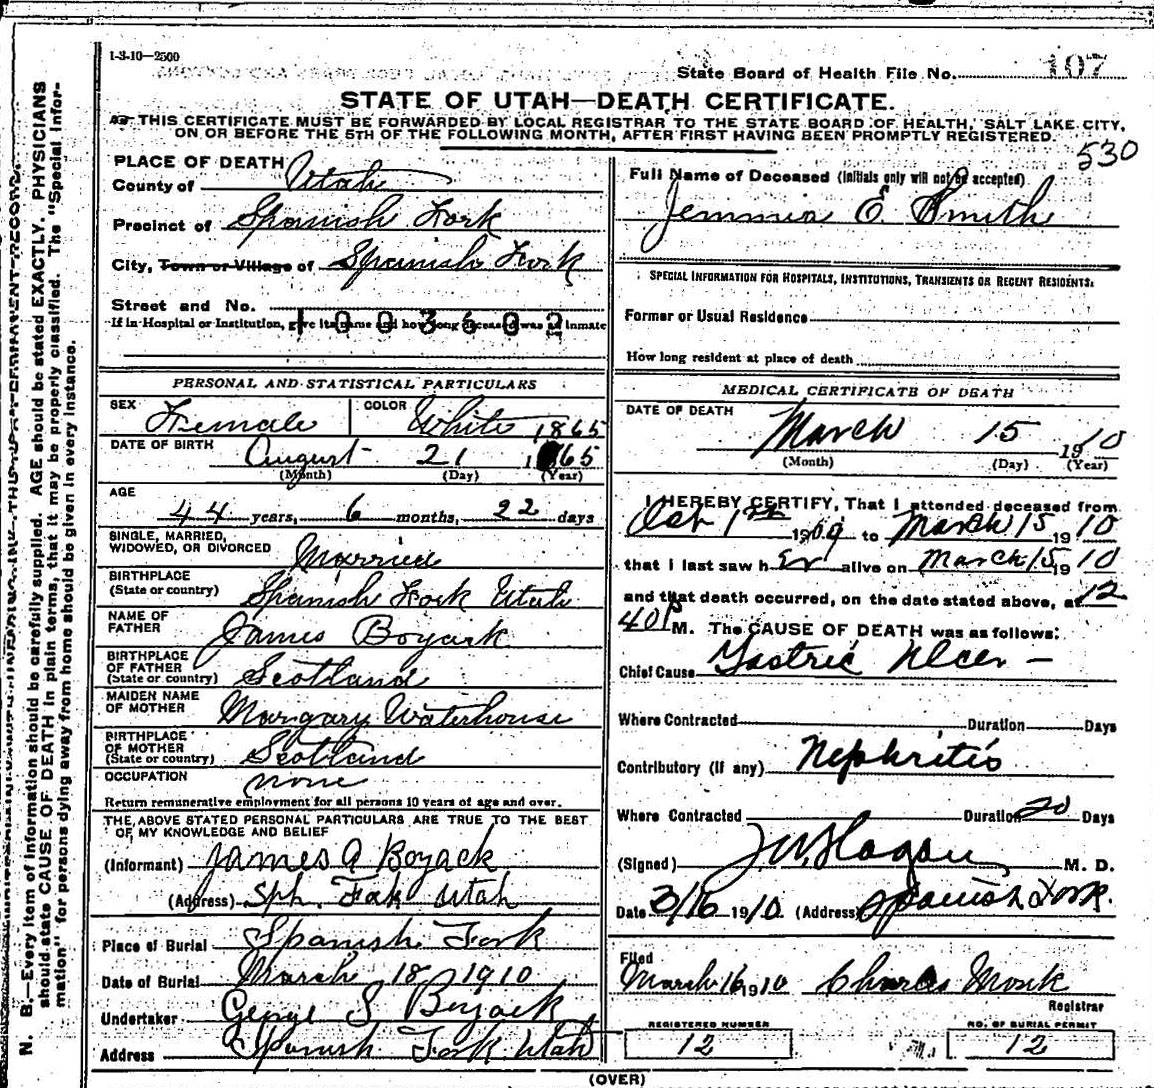 1-3-10—2500
State Board of Health File No. 107
STATE OF UTAH—DEATH CERTIFICATE.
THIS CERTIFICATE MUST BE FORWARDED BY LOCAL REGISTRAR TO THE STATE BOARD OF HEALTH, SALT LAKE CITY,
ON OR BEFORE THE 5TH OF THE FOLLOWING MONTH, AFTER FIRST HAVING BEEN PROMPTLY REGISTERED.
530
PLACE OF DEATH
County of Utah
Precinct of Spanish Fork
City, Town or Village of Spanish Fork
Street and No.
If in Hospital or Institution, give its name and how long deceased was an inmate
1003602
Full Name of Deceased (Initials only will not be accepted)
Jemmia E. Smith
SPECIAL INFORMATION FOR HOSPITALS, INSTITUTIONS, TRANSIENTS OR RECENT RESIDENTS:
Former or Usual Residence
How long resident at place of death
PERSONAL AND STATISTICAL PARTICULARS
SEX Female COLOR White 1865
DATE OF BIRTH August 21 1865
(Month) (Day) (Year)
AGE
44 years, 6 months, 22 days
SINGLE, MARRIED,
WIDOWED, OR DIVORCED Married
BIRTHPLACE
(State or country) Spanish Fork Utah
NAME OF
FATHER James Boyack
BIRTHPLACE
OF FATHER
(State or country) Scotland
MAIDEN NAME
OF MOTHER Margary Waterhouse
BIRTHPLACE
OF MOTHER
(State or country) Scotland
OCCUPATION none
Return remunerative employment for all persons 10 years of age and over.
THE ABOVE STATED PERSONAL PARTICULARS ARE TRUE TO THE BEST
OF MY KNOWLEDGE AND BELIEF
(Informant) James A Boyack
(Address) Sph. Fok Utah
Place of Burial Spanish Fork
Date of Burial March 18 1910
Undertaker George S Boyack
Address Spanish Fork Utah
MEDICAL CERTIFICATE OF DEATH
DATE OF DEATH
March 15 1910
(Month) (Day) (Year)
I HEREBY CERTIFY, That I attended deceased from
Oct 1st 1909 to March 15 1910
that I last saw her alive on March 15 1910
and that death occurred, on the date stated above, at 12
40 P M. The CAUSE OF DEATH was as follows:
Chief Cause Gastric Ulcer —
Where Contracted Duration Days
Contributory (if any) Nephritis
Where Contracted Duration 20 Days
(Signed) J W Hagan M. D.
Date 3/16 1910 (Address) Spanish Fork.
Filed
March 16 1910 Charles Monk
Registrar
REGISTERED NUMBER
12
NO. OF BURIAL PERMIT
12
(OVER)
N. B.—Every item of information should be carefully supplied. AGE should be stated EXACTLY. PHYSICIANS
should state CAUSE OF DEATH in plain terms, that it may be properly classified. The "Special Infor-
mation" for persons dying away from home should be given in every instance.